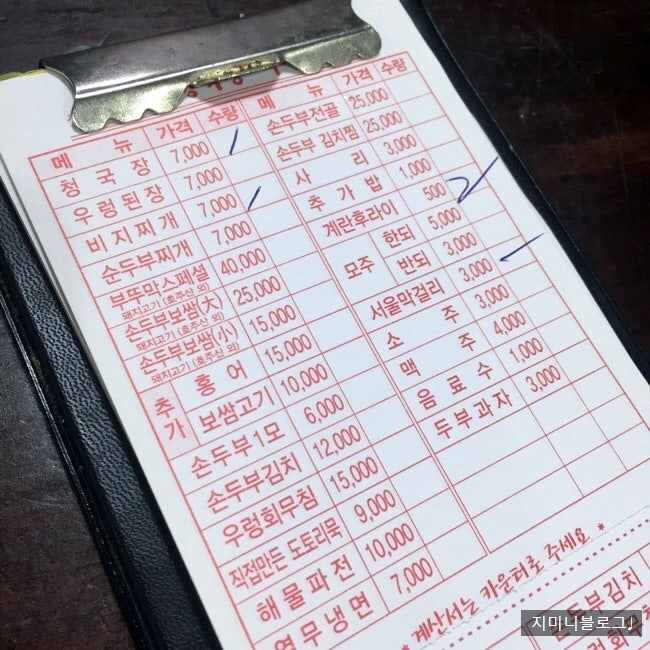 메 뉴 가격 수량
청 국 장 7,000
우렁된장 7,000
비지찌개 7,000
순두부찌개 7,000
부뚜막스페셜 40,000
돼지고기 (호주산 외)
손두부보쌈(大) 25,000
돼지고기 (호주산 외)
손두부보쌈(小) 15,000
돼지고기 (호주산 외)
추가 홍 어 15,000
보쌈고기 10,000
손두부1모 6,000
손두부김치 12,000
우렁회무침 15,000
직접만든 도토리묵 9,000
해 물 파 전 10,000
열 무 냉 면 7,000
메 뉴 가격 수량
손두부전골 25,000
손두부 김치찜 25,000
사 리 3,000
추 가 밥 1,000
계란후라이 500
모주 한되 5,000
반되 3,000
서울막걸리 3,000
소 주 3,000
맥 주 4,000
음 료 수 1,000
두부과자 3,000
* 계산서는 카운터로 주세요 *
손두부김치
지미니블로그♩